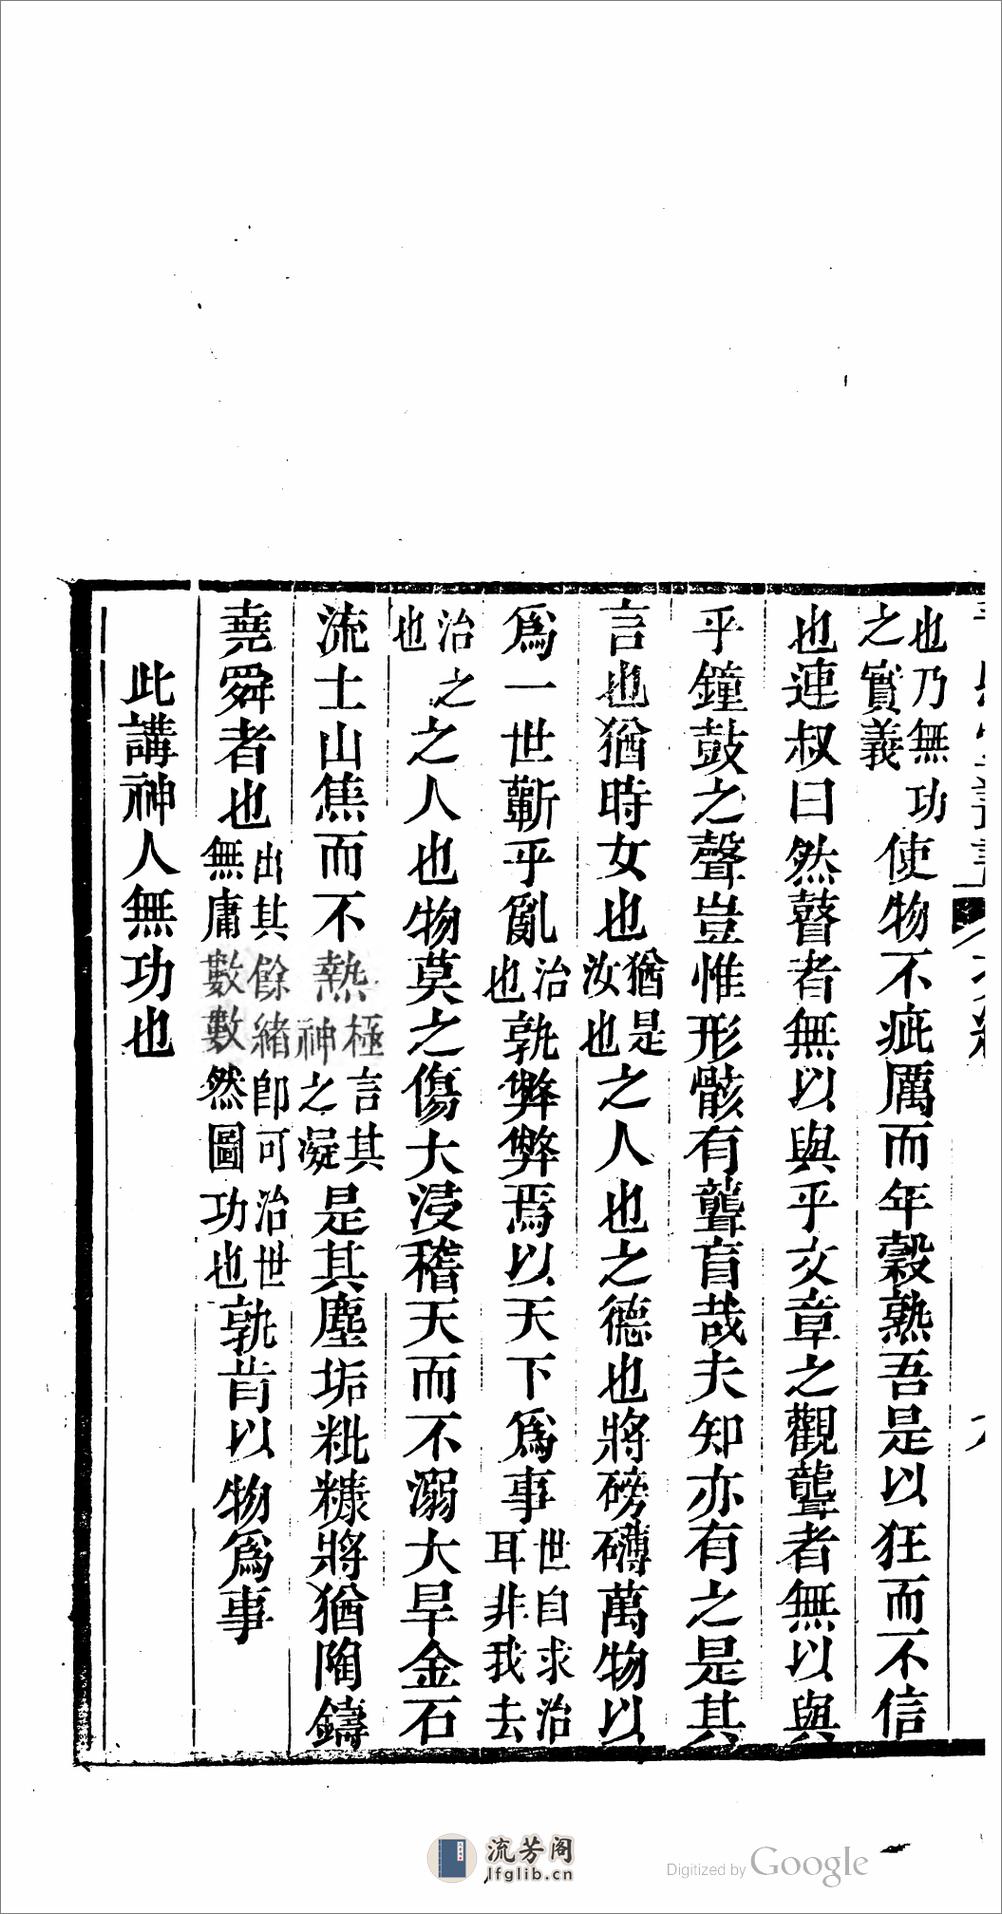 也乃無功之實義使物不疵厲而年穀熟吾是以狂而不信
也連叔曰然瞽者無以與乎文章之觀聾者無以與
乎鐘鼓之聲豈惟形骸有聾盲哉夫知亦有之是其
言也猶時女也猶是汝也之人也之德也將磅礴萬物以
爲一世蘄乎亂治也孰弊弊焉以天下爲事世自求治耳非我去
治之也之人也物莫之傷大浸稽天而不溺大旱金石
流土山焦而不熱極言其神之凝是其塵垢粃糠將猶陶鑄
堯舜者也出其餘緒卽可治世無庸數數然圖功也孰肯以物爲事
此講神人無功也
流芳阁
lfglib.cn
Digitized by Google